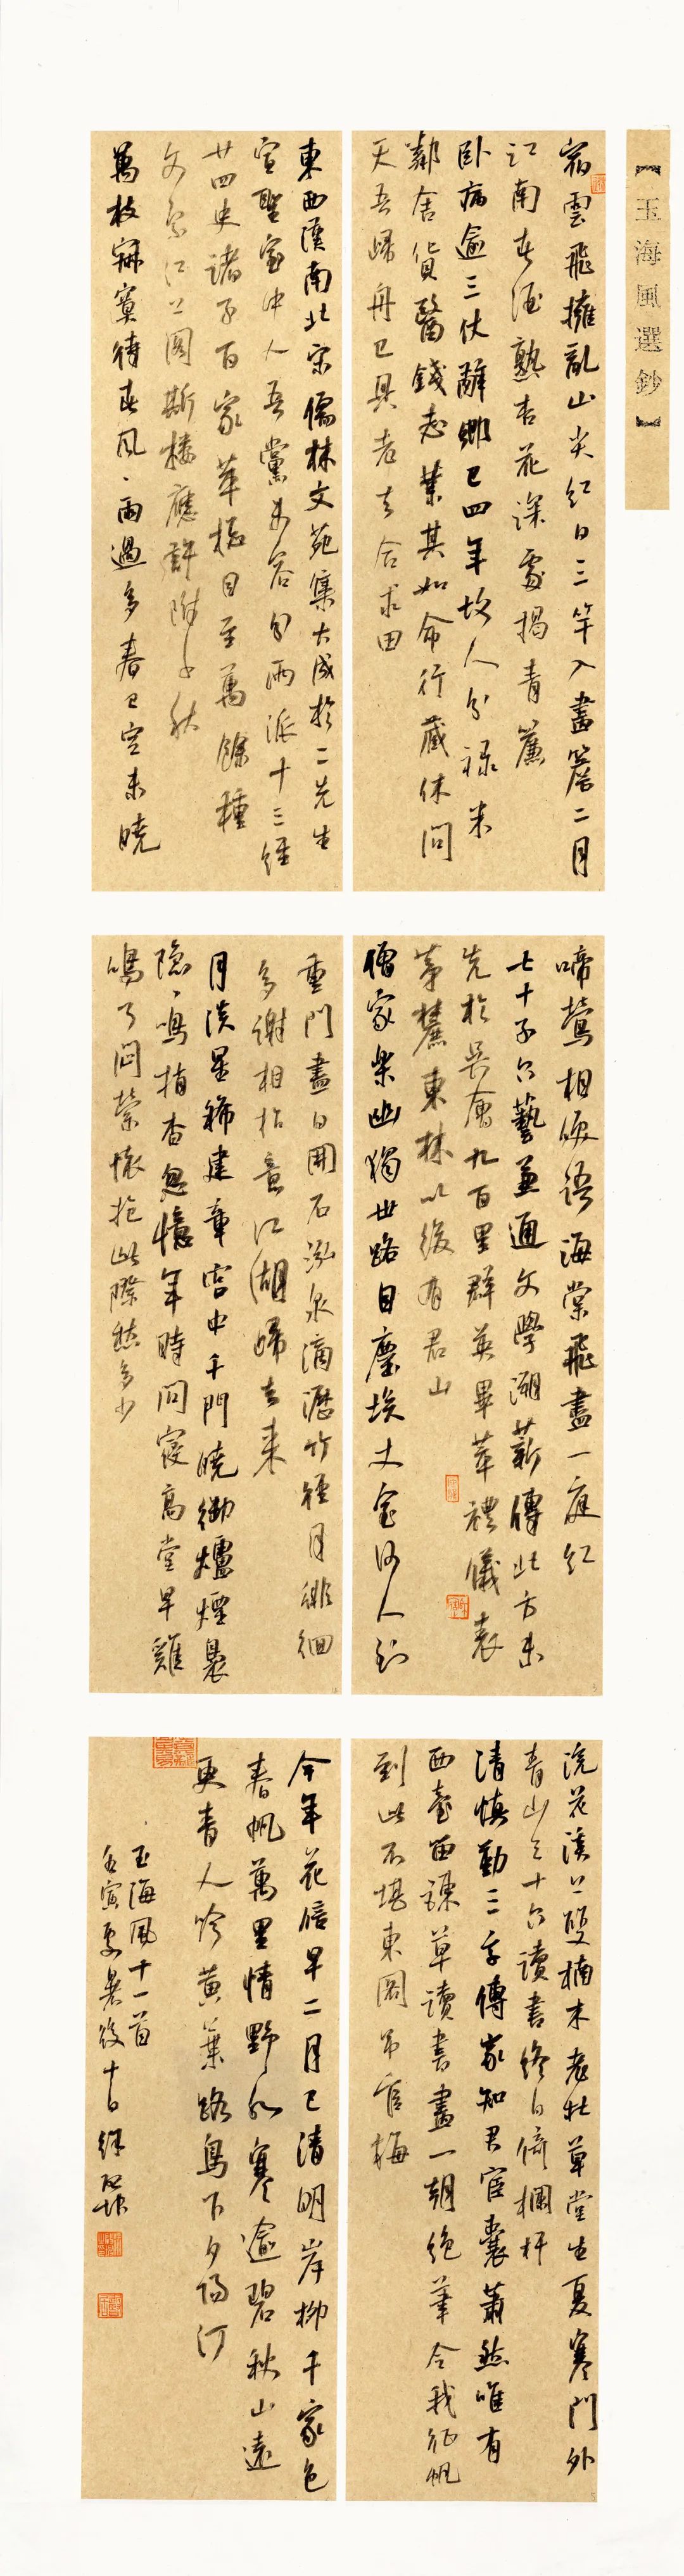 【玉海風選鈔】
宿雲飛擁亂山尖紅日三竿入畫簷二月
江南春酒熟杏花深處揭青簾
臥病逾三伏辭鄉已四年故人分祿米
鄰舍貸醫錢志業其如命行藏休問
天吾歸舟已具老去合求田
東西漢南北宋儒林文苑集大成於二先生
宣聖室中人吾黨未容分兩派十三經
廿四史諸子百家萃總目至萬餘種
文宗江上閣斯樓應許附千秋
萬枝寂寞待春風風雨過多春已空未曉
啼鶯相喚語海棠飛盡一庭紅
七十子六藝兼通文學溯薪傳北方未
先於吳會九百里群英畢萃禮儀表
茅麓東林以後有君山
僧家樂幽獨世路自塵埃丈室何人到
重門盡日開石泓泉滴瀝竹徑月徘徊
多謝相招意江湖歸去來
月淡星稀建章宮中千門曉御爐煙裊
隱隱鳴梢杳忽憶年時問寢高堂早雞
鳴了悶縈懷抱此際愁多少
浣花溪上雙楠木老杜草堂生夏寒門外
青山三十六讀書終日倚欄杆
清慎勤三字傳家知君宦囊蕭然唯有
西臺留諫草讀書畫一朝絕筆令我征帆
到此不堪東閣吊官梅
今年花信早二月已清明岸柳千家色
春帆萬里情野水寒逾碧秋山遠
更青人吟黃葉路鳥下夕陽汀
玉海風十一首
壬寅處暑後十日